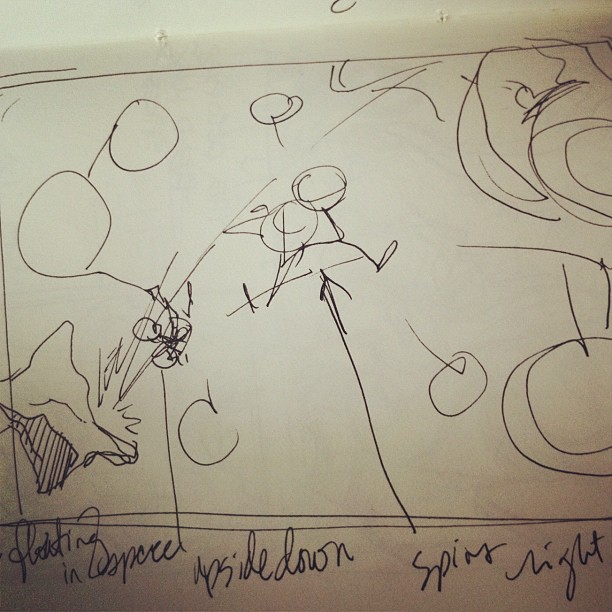 floating upside down spins right
in space